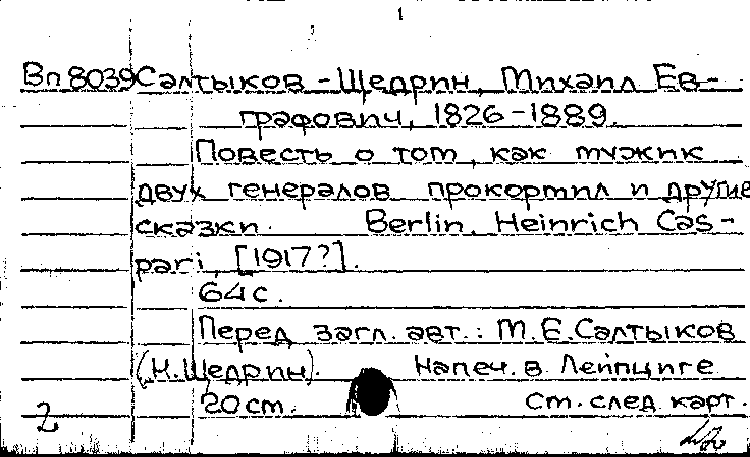 Вп8039 Салтыков-Щедрин, Михаил Ев-
графович, 1826-1889.
Повесть о том, как мужик
двух генералов прокормил и другие
сказки. Berlin, Heinrich Cas-
pari, [1917?].
64 с.
Перед загл. авт.: М.Е.Салтыков
(Н.Щедрин). Напеч. в Лейпциге
20 см. См. след. карт.
2